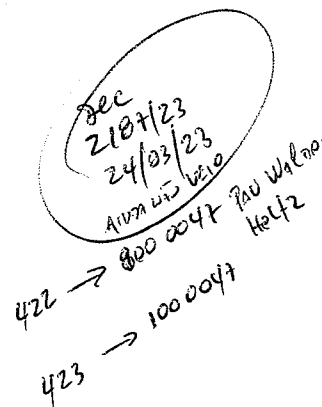 Dec
2187/23
24/03/23
AINDA NÃO VEIO
422 → 800 0047 PAV Waldo
Heltz
423 → 1000047